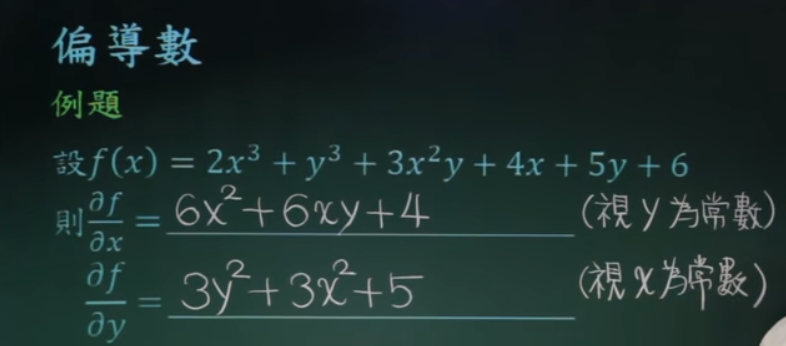 偏導數
例題
設f(x) = 2x³ + y³ + 3x²y + 4x + 5y + 6
則 ∂f/∂x = 6x²+6xy+4 (視y為常數)
∂f/∂y = 3y²+3x²+5 (視x為常數)